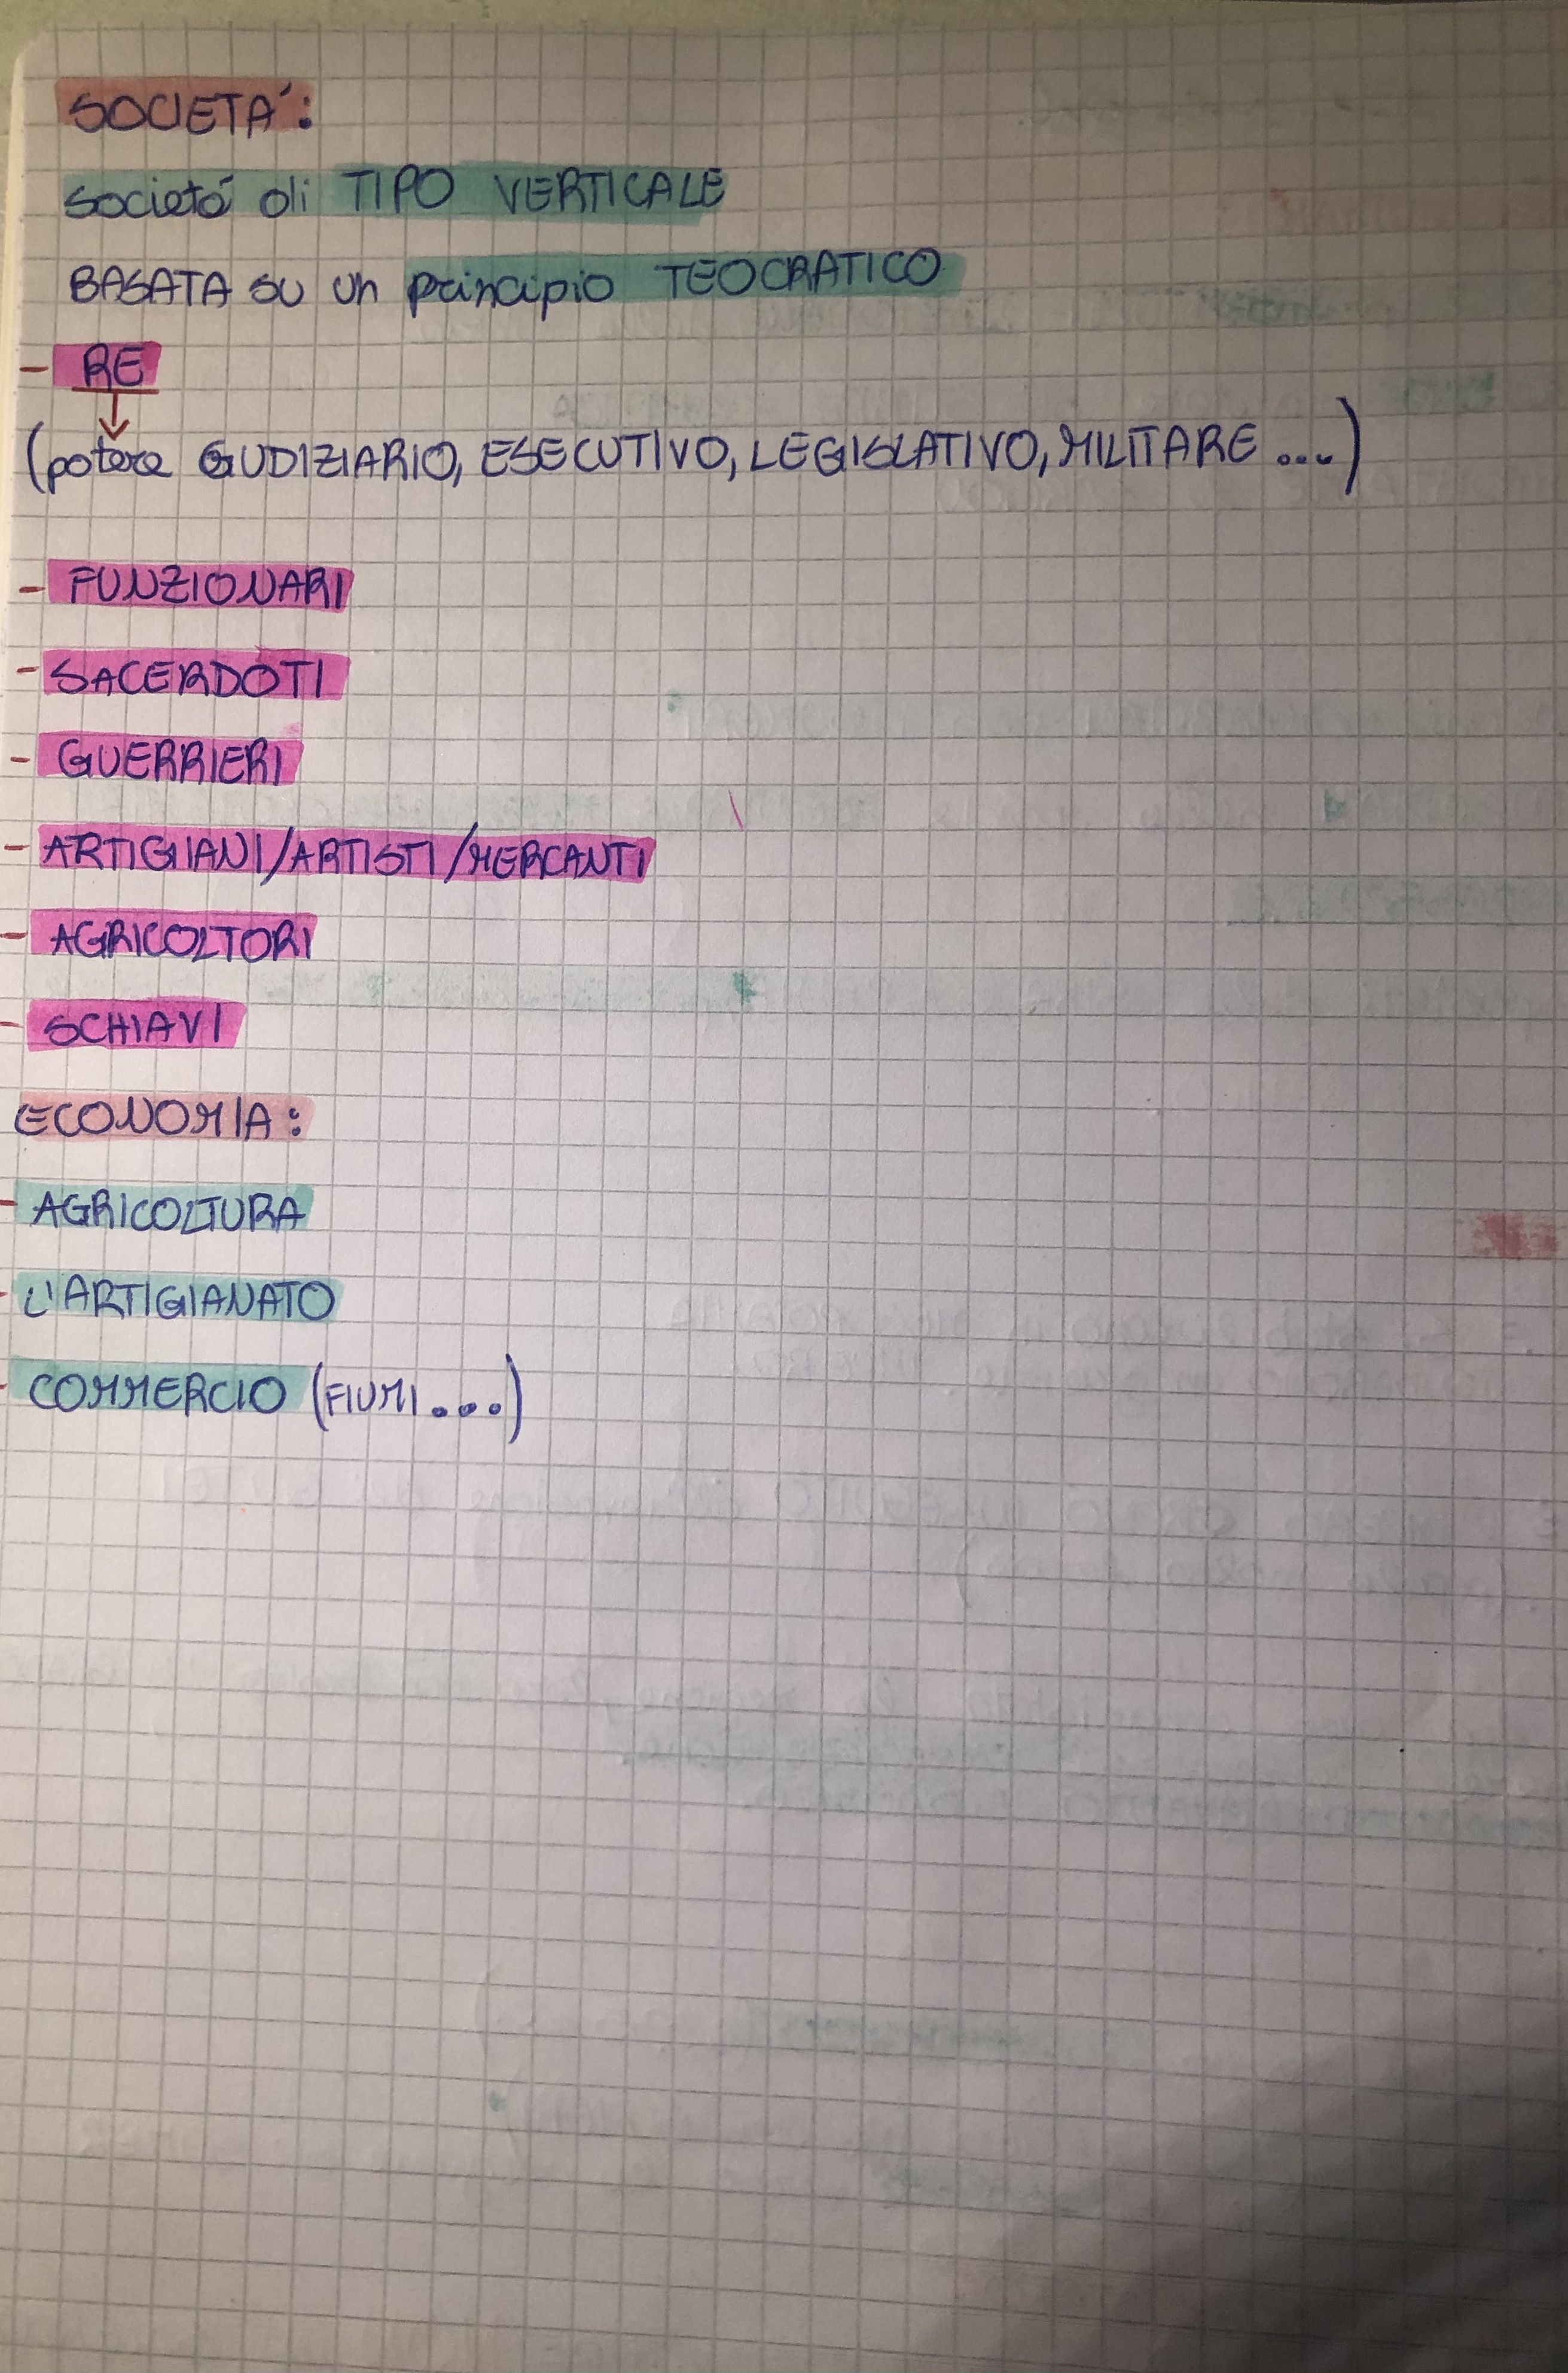 SOCIETA':
società di TIPO VERTICALE
BASATA SU un principio TEOCRATICO
- RE
(potere GIUDIZIARIO, ESECUTIVO, LEGISLATIVO, MILITARE ...)
- FUNZIONARI
- SACERDOTI
- GUERRIERI
- ARTIGIANI/ARTISTI/MERCANTI
- AGRICOLTORI
- SCHIAVI
ECONOMIA:
- AGRICOLTURA
- L'ARTIGIANATO
- COMMERCIO (FIUMI...)